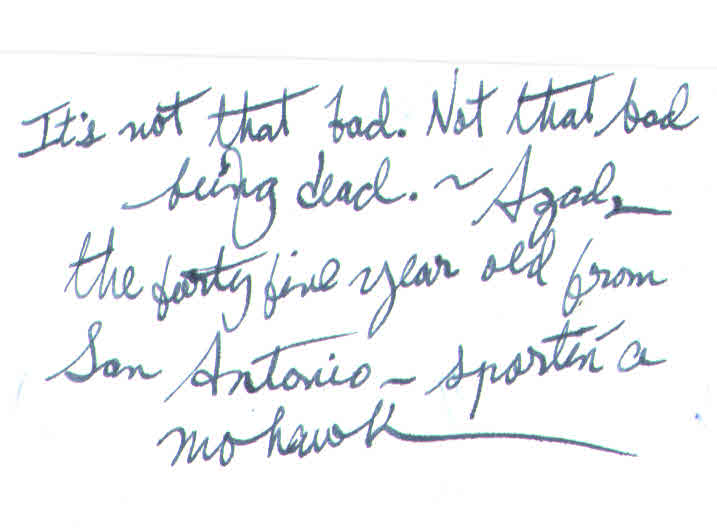 It's not that bad. Not that bad
being dead. ~ Azad –
the forty five year old from
San Antonio – sportin' a
mohawk